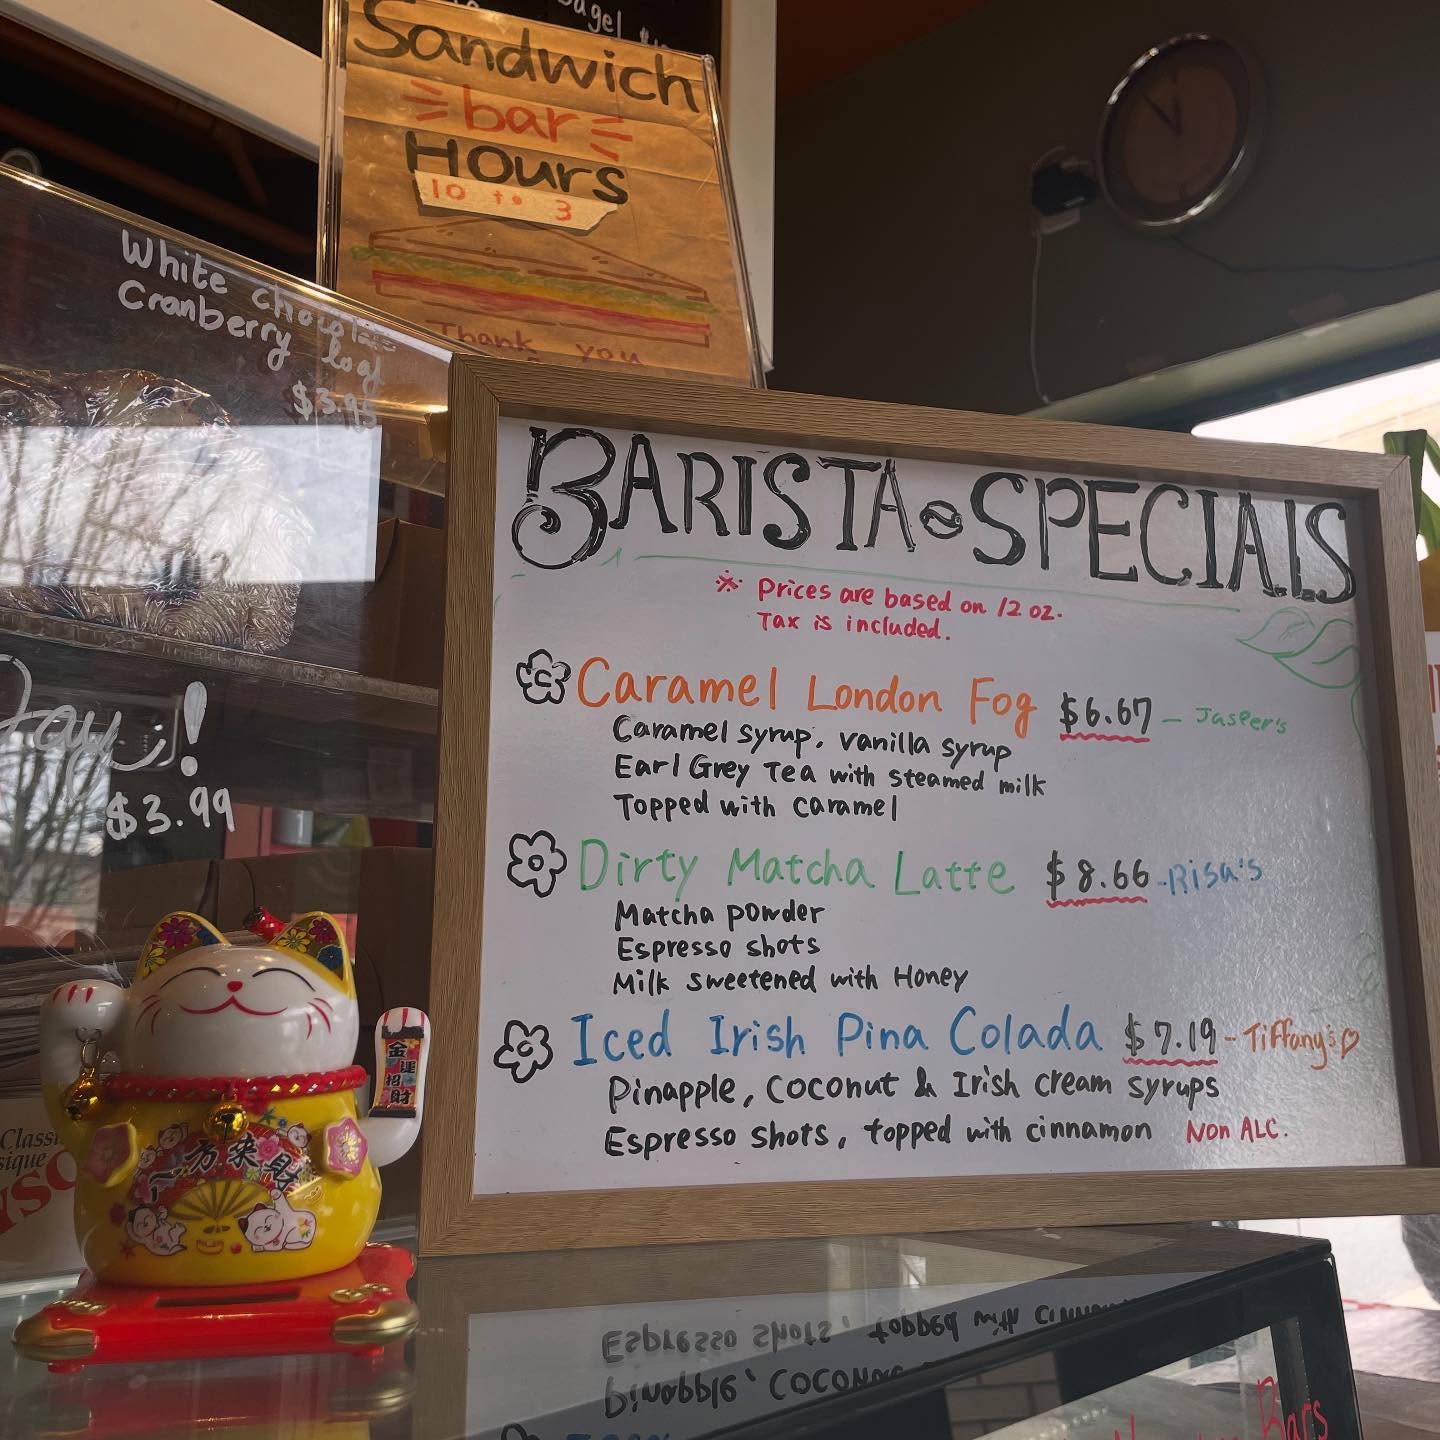 Bagel
Sandwich
bar
Hours
10 to 3
Thank you
White chocolate
Cranberry loaf
$3.95
Jay!
$3.99
BARISTA SPECIALS
※ Prices are based on 12 oz.
Tax is included.
Caramel London Fog $6.67 - Jasper's
Caramel syrup, vanilla syrup
Earl Grey Tea with steamed milk
Topped with caramel
Dirty Matcha Latte $8.66 - Risa's
Matcha powder
Espresso shots
Milk sweetened with Honey
Iced Irish Pina Colada $7.19 - Tiffany's ♡
Pinapple, Coconut & Irish cream syrups
Espresso shots, topped with cinnamon Non ALC.
金運招財
千万来財
Classi
sique
Bars